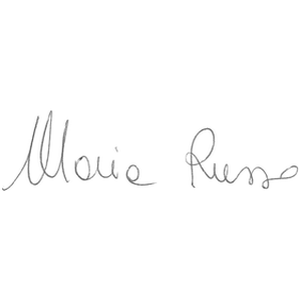 Maria Russo